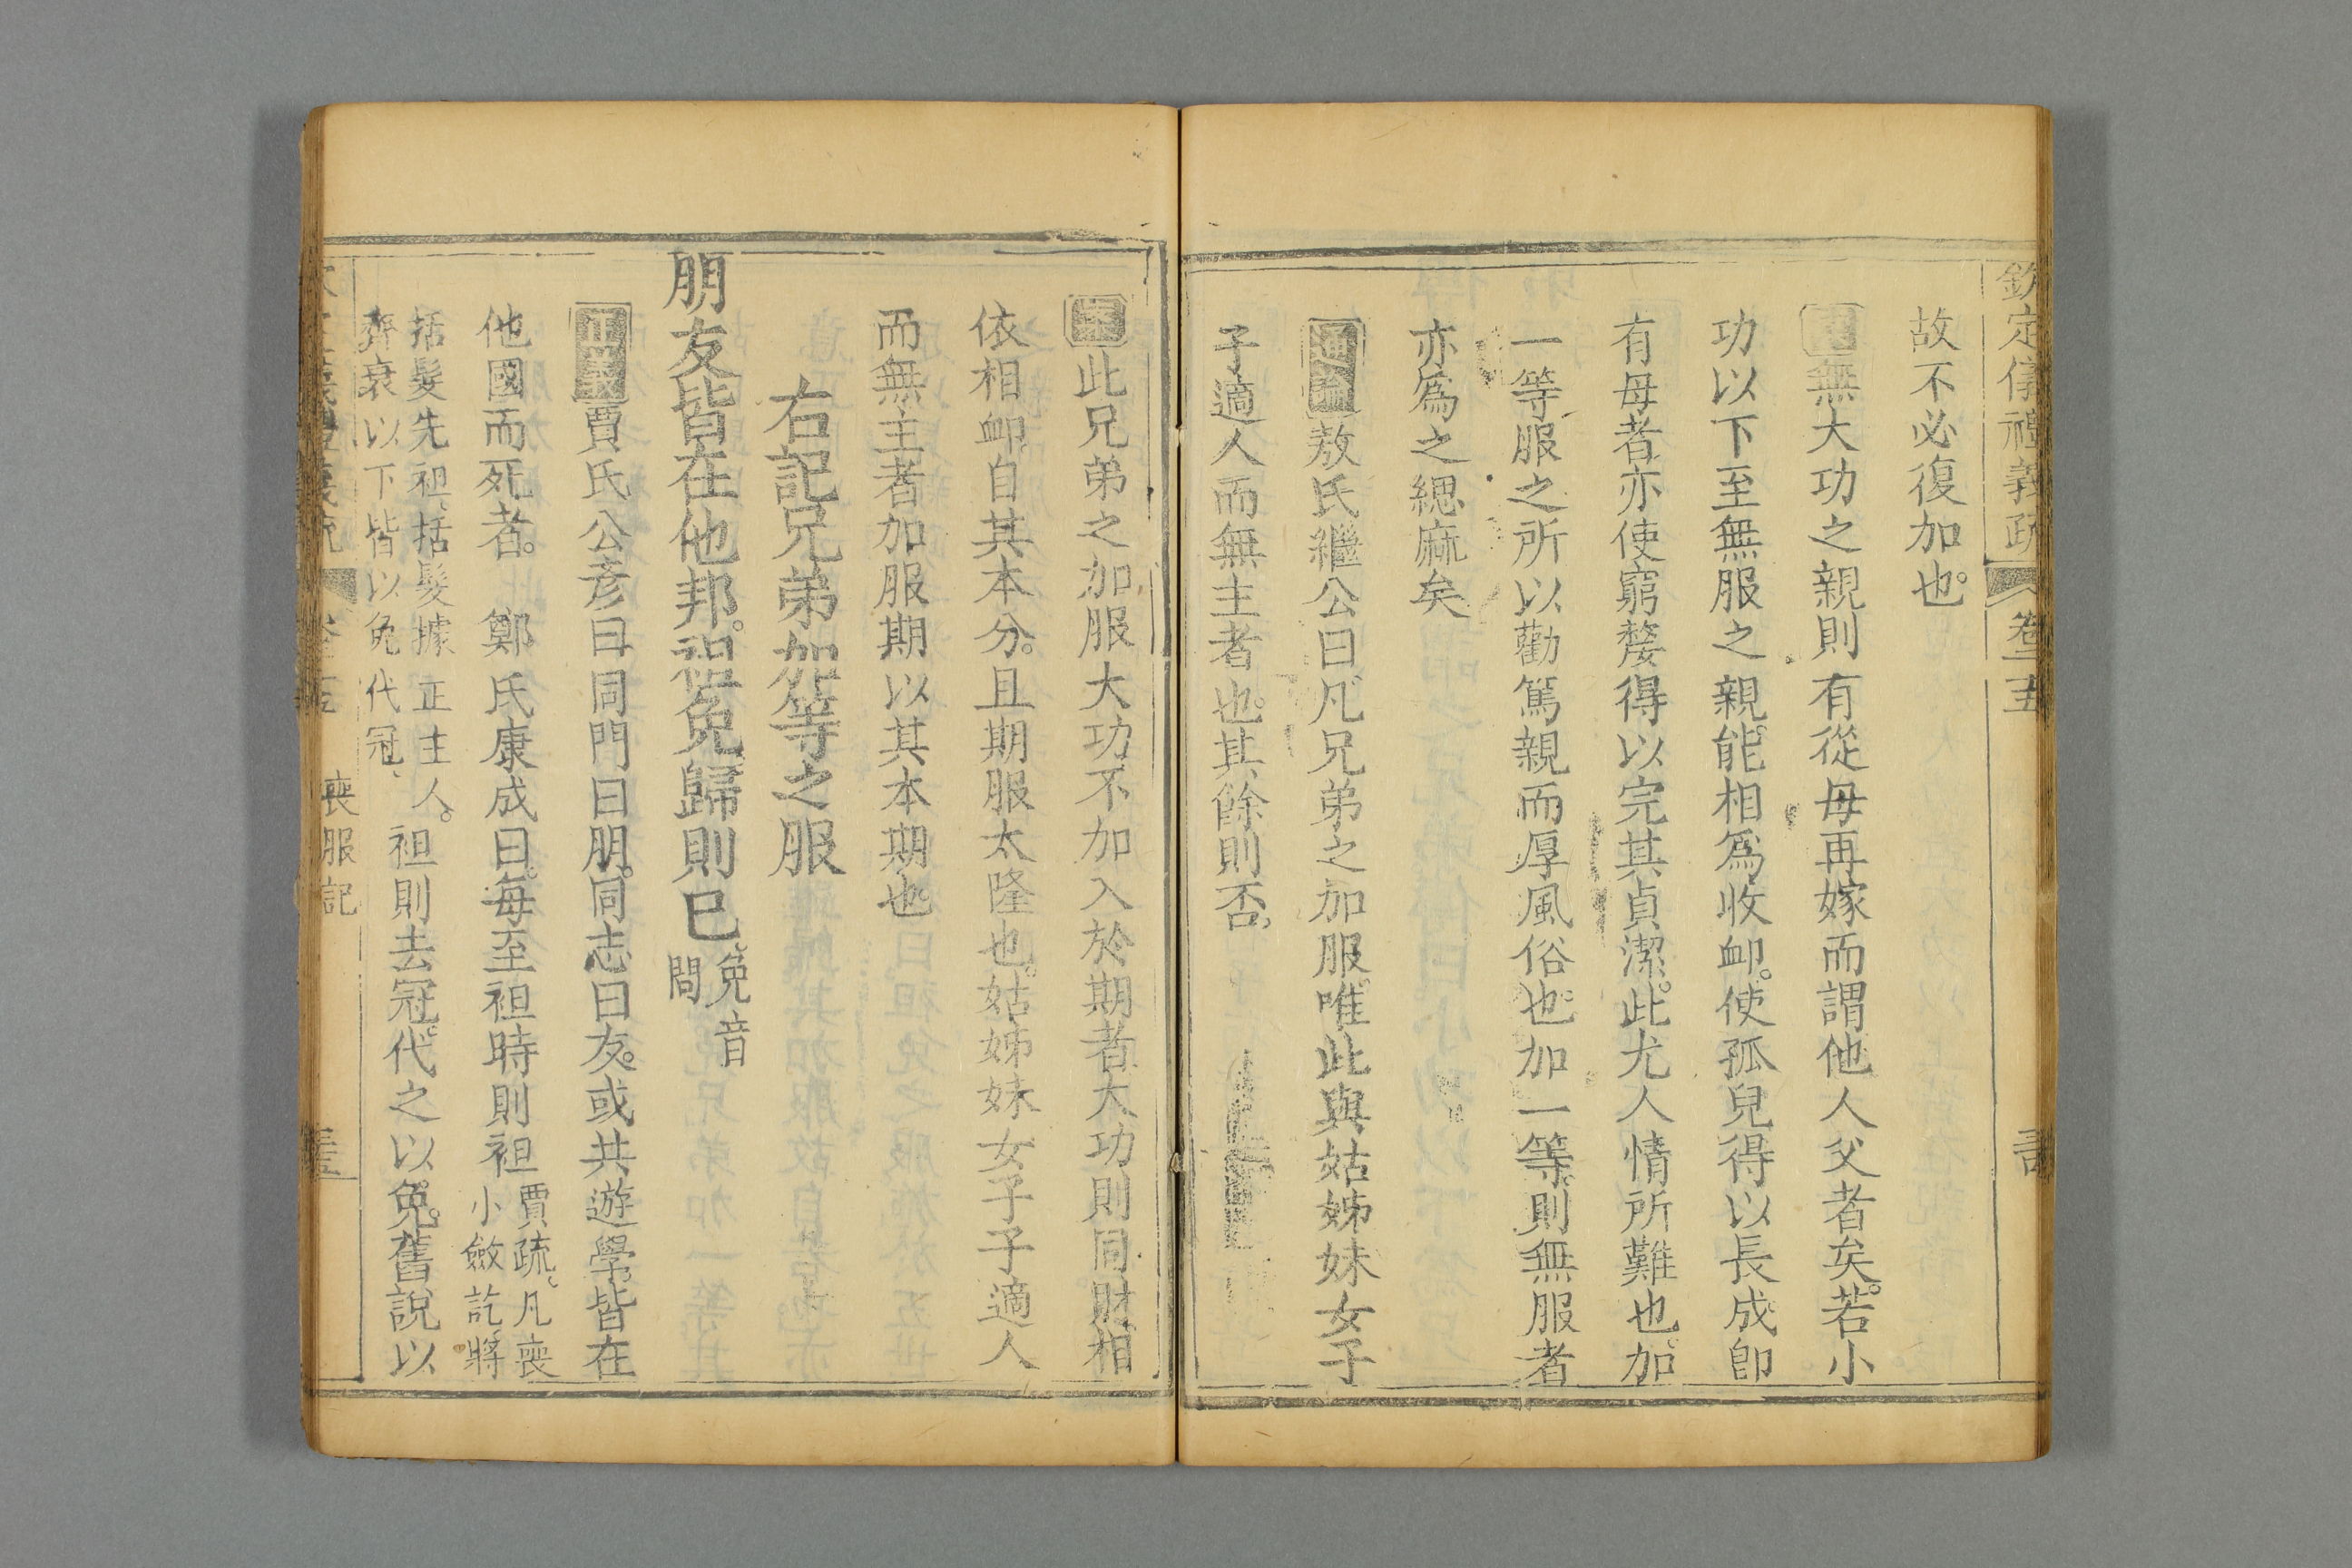 欽定儀禮義疏 卷二五
故不必復加也。
無大功之親則有從母再嫁而謂他人父者矣。若小
功以下至無服之親。能相為收卹。使孤兒得以長成。卽
有母者亦使窮嫠得以完其貞潔。此尤人情所難也。加
一等服之所以勸篤親而厚風俗也。加一等。則無服者
亦為之緦麻矣
通論敖氏繼公曰。凡兄弟之加服。唯此與姑姊妹女子
子適人而無主者也。其餘則否。
案此兄弟之加服大功不加入於期者。大功則同財相
依相卹。自其本分。且期服太隆也。姑姊妹女子子適人
而無主者加服期以其本期也。
右記兄弟加等之服
朋友皆在他邦。袒免歸則已。免音問
正義賈氏公彥曰同門曰朋。同志曰友。或共遊學。皆在
他國而死者。 鄭氏康成曰。每至袒時則袒賈疏。凡喪小斂訖。將
括髮先袒、括髮據正主人。齊衰以下皆以免代冠、袒則去冠。代之以免。舊說以
喪服記